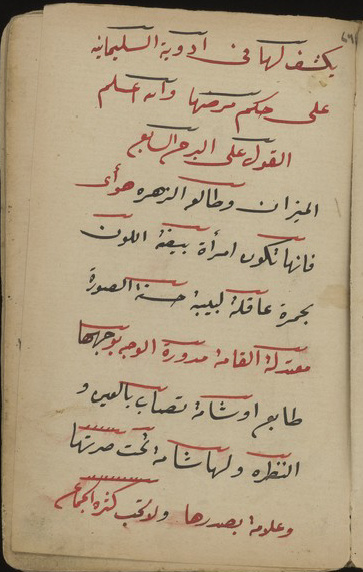 يكشف لها فى ادوية السليمانيه
على حكم مرضها والله اعلم
القول على البرج السابع
الميزان وطالعه الزهره هوأى
فانها تكون امرأة بيضة اللون
بحمرة عاقلة لبيبة حسنة الصورة
معتدلة القامة مدورة الوجه بوجهها
طابع اوشامة تصاب بالعين و
النظره ولها شامة تحت صرتها
وعلامة بصدرها ولاتحب كثرة الجماع